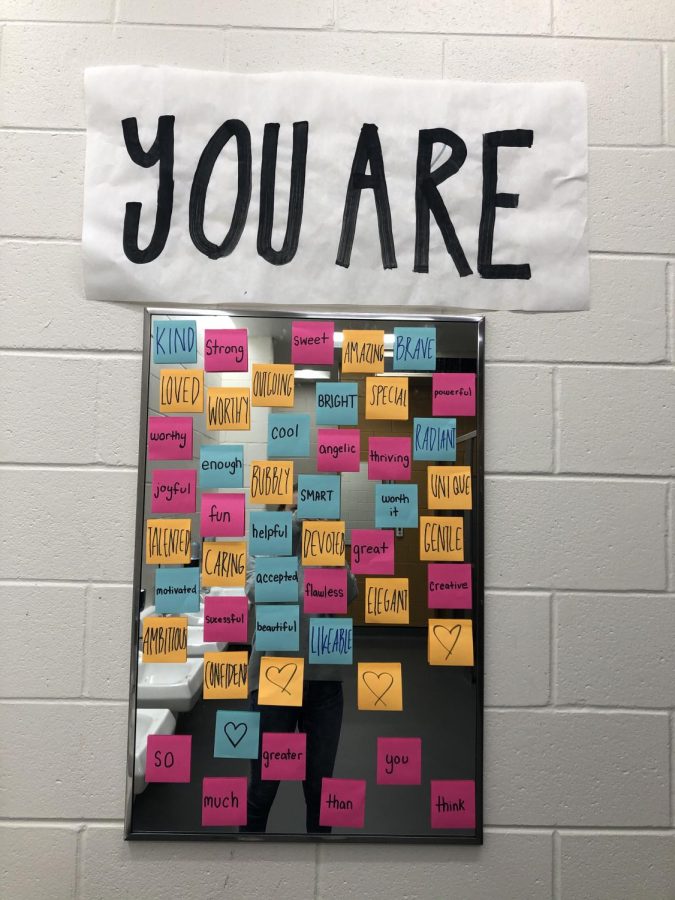 YOU ARE
KIND
Strong
sweet
AMAZING
BRAVE
LOVED
WORTHY
OUTGOING
BRIGHT
SPECIAL
powerful
worthy
cool
angelic
thriving
RADIANT
enough
joyful
BUBBLY
SMART
worth
it
UNIQUE
fun
TALENTED
helpful
DEVOTED
great
GENTLE
CARING
motivated
accepted
flawless
ELEGANT
Creative
sucessful
beautiful
LIKEABLE
AMBITIOUS
CONFIDENT
SO
much
greater
than
you
think